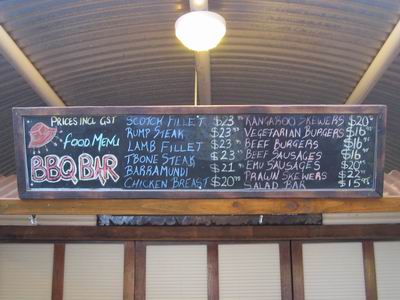 PRICES INCL GST
FOOD MENU
BBQ BAR
SCOTCH FILLET $23
RUMP STEAK $23
LAMB FILLET $23
TBONE STEAK $23
BARRAMUNDI $21
CHICKEN BREAST $20
KANGAROO SKEWERS $20
VEGETARIAN BURGERS $16
BEEF BURGERS $16
BEEF SAUSAGES $16
EMU SAUSAGES $20
PRAWN SKEWERS $22
SALAD BAR $15